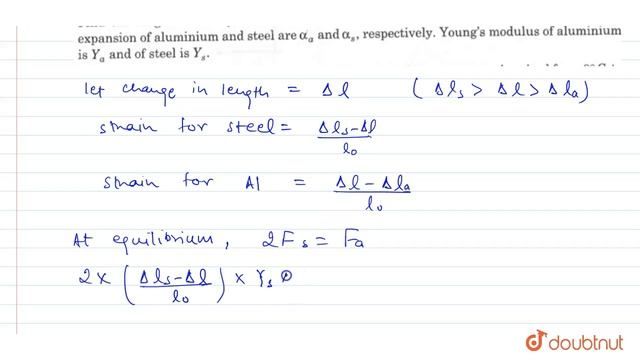 expansion of aluminium and steel are αₐ and αₛ, respectively. Young's modulus of aluminium
is Yₐ and of steel is Yₛ.
let change in length = Δl (Δlₛ > Δl > Δlₐ)
strain for steel = (Δlₛ-Δl)/l₀
strain for Al = (Δl-Δlₐ)/l₀
At equilibrium, 2Fₛ = Fₐ
2 x ((Δlₛ-Δl)/l₀) x Yₛ
doubtnut